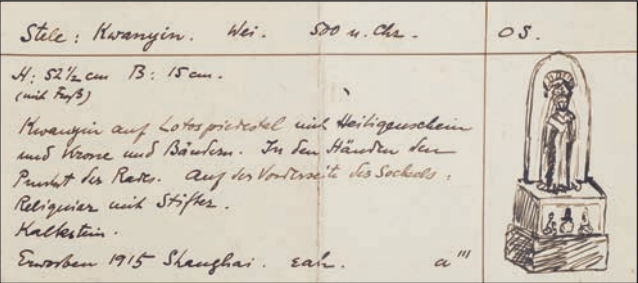 Stele: Kwanyin. Wei. 500 n. Chr. OS.
H: 52 1/2 cm B: 15 cm.
(mit Fuß)
Kwanyin auf Lotospiedestal mit Heiligenschein
und Krone und Bändern. In den Händen den
des Rades. Auf der Vorderseite des Sockels:
Religuiar mit Stifter.
Kalkstein.
Erworben 1915 Shanghai. a'''